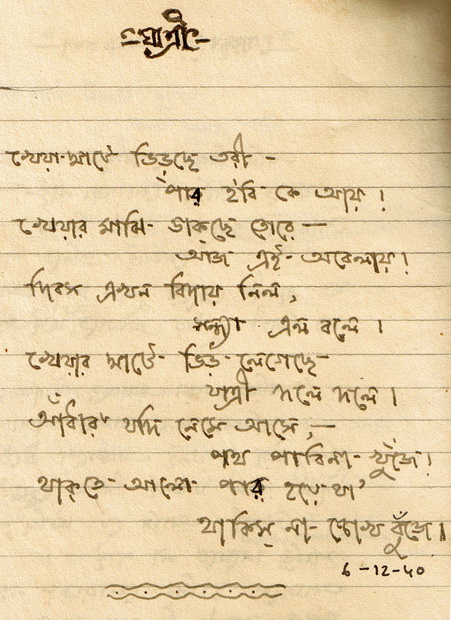 -যাত্রী-
খেয়া-ঘাটে ভিড়ছে তরী -
পার হবি কে আয় !
খেয়ার মাঝি- ডাকছে তোরে —
আজ এই- অবেলায় !
দিবস এখন বিদায় নিল,
সন্ধ্যা এল বলে ।
খেয়ার ঘাটে- ভিড় লেগেছে-
যাত্রী দলে দলে ।
আঁধার যদি নেমে আসে, —
পথ পাবিনা- খুঁজে !
থাকতে- আলো- পার হয়ে যা'
থাকিস্ না- চোখ বুঁজে ॥
6-12-40